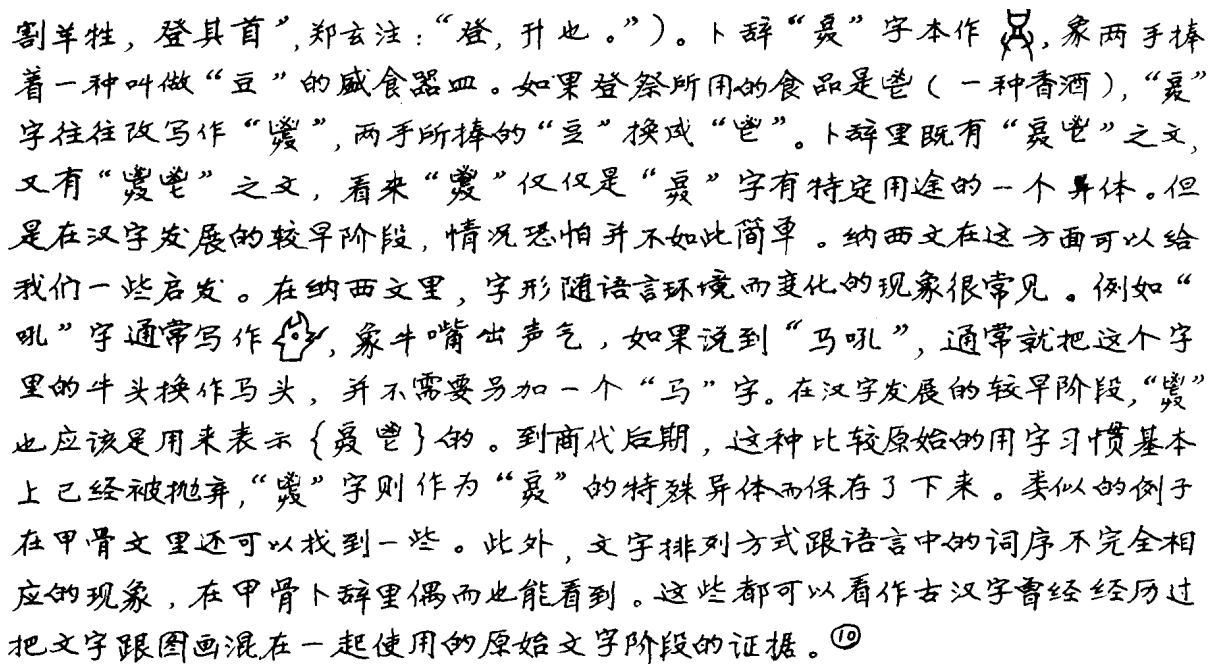 割羊牲，登其首”，郑玄注：“登，升也。”）。卜辞“”字本作，象两手捧
着一种叫做“豆”的盛食器皿。如果登祭所用的食品是鬯（一种香酒），“”
字往往改写作“”，两手所捧的“豆”换成“鬯”。卜辞里既有“鬯”之文，
又有“鬯”之文，看来“”仅仅是“”字有特定用途的一个异体。但
是在汉字发展的较早阶段，情况恐怕并不如此简单。纳西文在这方面可以给
我们一些启发。在纳西文里，字形随语言环境而变化的现象很常见。例如“
吼”字通常写作，象牛嘴出声气，如果说到“马吼”，通常就把这个字
里的牛头换作马头，并不需要另加一个“马”字。在汉字发展的较早阶段，“”
也应该是用来表示{鬯}的。到商代后期，这种比较原始的用字习惯基本
上已经被抛弃，“”字则作为“”的特殊异体而保存了下来。类似的例子
在甲骨文里还可以找到一些。此外，文字排列方式跟语言中的词序不完全相
应的现象，在甲骨卜辞里偶而也能看到。这些都可以看作古汉字曾经经历过
把文字跟图画混在一起使用的原始文字阶段的证据。⑩